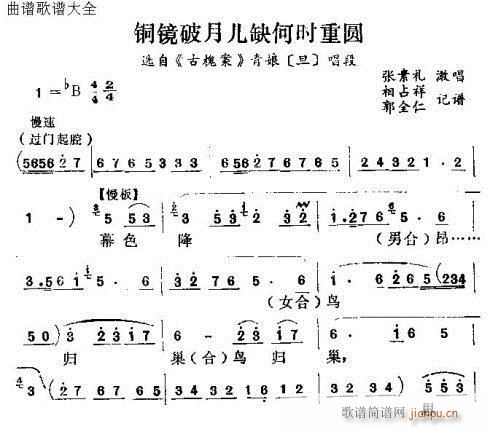 曲谱歌谱大全
铜镜破月儿缺何时重圆
选自《古槐案》青娘〔旦〕唱段
1=♭B 4/4 2/4
张素礼 演唱
相占祥
郭全仁 记谱
慢速
(过门起腔)
(5656 2 7 6 7 6 5 3 3 3 6 5 6 2 7 6 7 6 5 1 2 2 4 3 2 1
【慢板】
1 -) 5 5 3 3 5 3 2 3 2 1 . 2 7 6 5 . 6
暮色 降 (男合)昂……
3 . 5 6 1 5 . 6 3 2 7 6 5 . 6 1 . 6 2 6 5 (234
(女合)鸟
5 0) 1 2 3 2 1 7 6 - 2 3 1 7 6 . 1 6 5
归 巢(合)鸟归 巢,
3 (2 1 7 6 7 6 5 3 6 1 2 3 2 3 4 3 2 . ) 5 5 3
歌谱简谱网
jianpu.cn